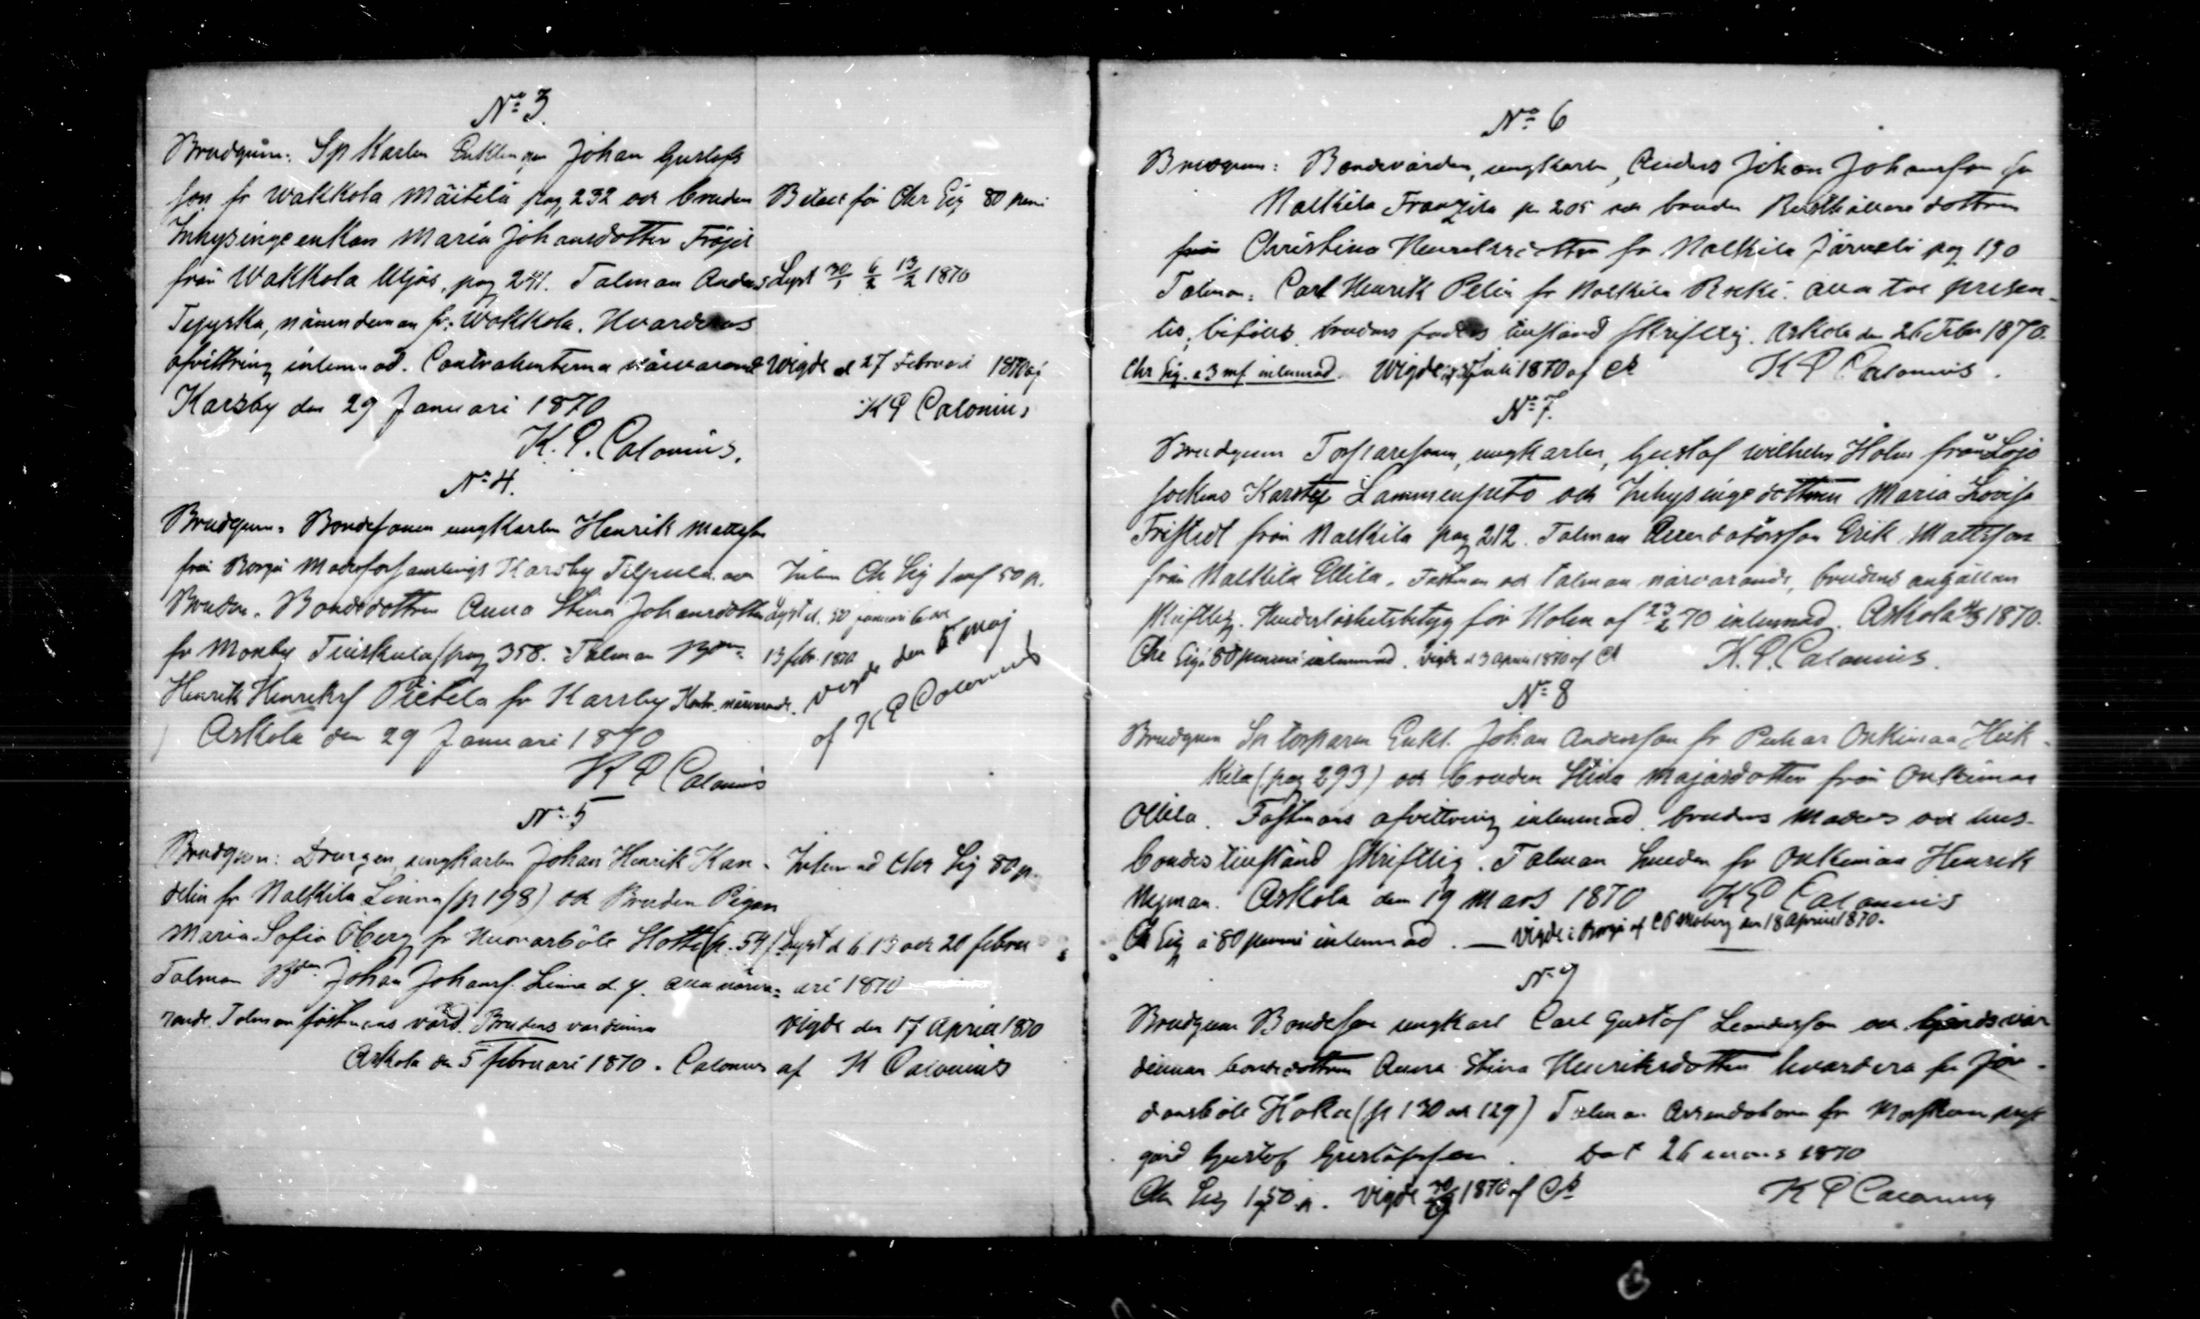 No 3.
Brudgum: Sp Karlen Enklingen Johan Gustafs
son fr Wakkola Mäitelä pag 232 och bruden
Inhysinge enkan Maria Johansdotter Fröjd
från Wakkola Uljas, pag 241. Talman Anders
nämndeman fr. Wakkola. Hvarderas
afvittring inlemnad. Contrahenterna närvarande
Karsby den 29 Januari 1870
K. P. Calonius.
Betalt för Chr Sig 80 penni
Lyst 30/1 6/2 13/2 1870
Wigde d 27 Februari 1870 af
K P Calonius
No 4.
Brudgum. Bondesonen ungkarlen Henrik Mattsson
från Borgå Moderförsamlings Karsby och
Bruden. Bondedottren Anna Stina Johansdotter
fr Monby Tiiskula (pag 358. Talman
Henrik Henriksf Pietilä fr Karsby Kontr. närvarande.
Askola den 29 Januari 1870
K P Calonius
Inlem Ch Sig 1 mf 50 p.
Lyst d. 30 januari 6 och
13 febr. 1870
Vigde den 5 Maj
af K P Calonius
No 5
Brudgum: Drengen ungkarlen Johan Henrik Kan-
delin fr Nalkkila Linna (p 198) och Bruden Pigan
Maria Sofia Öberg fr Huvarböle Hotti (p. 54)
Talman Johan Johansf. Linna d. y. alla närva-
rande. Talman fästmans värd. Brudens värdinna
Askola den 5 februari 1870. Calonius
Inlemnad Chr Sig 80 p.
Lyst d 6 13 och 20 febru
ari 1870
Vigde den 17 April 1870
af K Calonius
No 6
Brudgum: Bondevärden, ungkarlen, Anders Johan Johansson fr
Nalkkila Franzila p 205 och bruden Rusthållare dottren
Christina Henriksdotter fr Nalkkila Järvelä pag 190
Talman: Carl Henrik Pelin fr Nalkkila alla tre presen-
tes, bifölls brudens faders tillstånd skriftlig. Askola den 26 Febr 1870.
Chr Sig. a 3 mf inlemnad. Wigde Juli 1870 af Cs K P Calonius.
No 7.
Brudgum Torparesonen, ungkarlen, Gustaf Wilhelm Holm från Lojo
sockens Lammenpelto och Inhysinge dottren Maria Lovisa
Fristedt från Nalkkila pag 212. Talman Arrendatorsson Erik Mattsson
från Nalkkila Ollila. Fästman och talman närvarande, brudens
skriftlig. Hinderlöshetsbetyg för Holm af 23/2 70 inlemnad. Askola 1870.
Chr Sig a 80 penni inlemnad. Vigde d 3 April 1870 af Cs K. P. Calonius.
No 8
Brudgum Sp torparen Enkl. Johan Andersson fr Onkimaa Heik-
kila (pag 293) och bruden Stina Majasdotter från Onkimaa
Ollila. Fästmans afvittring inlemnad. brudens Moders och hus-
bondes tillstånd skriftlig. Talman fr Onkimaa Henrik
Nyman. Askola den 19 Mars 1870 K P Calonius
Chr Sig a 80 penni inlemnad. — Vigde i Borgå af den 18 April 1870.
No 9
Brudgum Bondeson ungkarl Carl Gustaf Leandersson och gårdsvär
dinnan bondedottren Anna Stina Henriksdotter hvardera fr Jor-
dansböle Kokin (p 130 och 129) Talman Arrendatorn fr
gård Gustaf Gustafsson. Dat 26 mars 1870
Chr Sig 1,50 p. Vigde 1870 af Cs K P Calonius